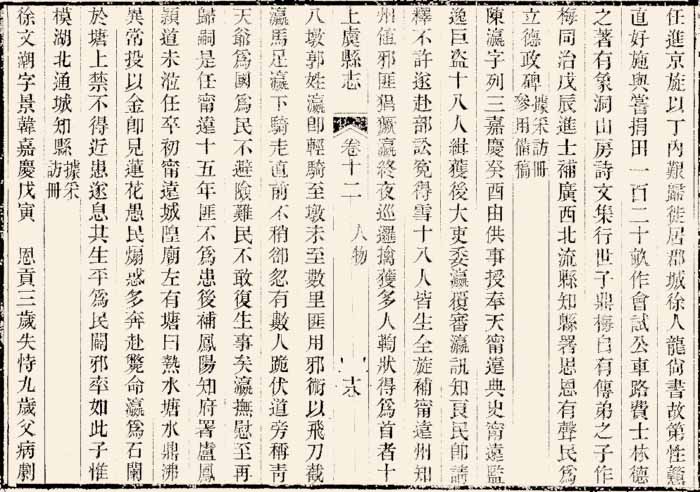 任進京旋以丁內艱歸徙居郡城徐人龍尙書故第性慷
直好施與嘗捐田一百二十畝作會試公車路費士林德
之著有象洞山房詩文集行世子鼎梅自有傳弟之子作
梅同治戊辰進士補廣西北流縣知縣署思恩有聲民爲
立德政碑據采訪冊參用備稿
陳瀛字列三嘉慶癸酉由供事授奉天甯遠典史甯遠監
逸巨盜十八人緝獲後大吏委瀛覆審瀛訊知良民卽請
釋不許遂赴部訟冤得雪十八人皆生全旋補甯遠州知
州値邪匪猖獗瀛終夜巡邏擒獲多人鞫狀得爲首者十
上虞縣志 卷十二 人物
八墩郭姓瀛卽輕騎至墩未至數里匪用邪術以飛刀截
瀛馬足瀛下騎走直前不稍卻忽有數人跪伏道旁稱靑
天爺爲國爲民不避險難民不敢復生事矣瀛撫慰至再
歸嗣是任甯遠十五年匪不爲患後補鳳陽知府署盧鳳
潁道未涖任卒初甯遠城隍廟左有塘曰熱水塘水鼎沸
異常投以金卽見蓮花愚民煽惑多奔赴斃命瀛爲石闌
於塘上禁不得近患遂息其生平爲民闢邪率如此子惟
模湖北通城知縣據采訪冊
徐文潮字景韓嘉慶戊寅 恩貢三歲失恃九歲父病劇